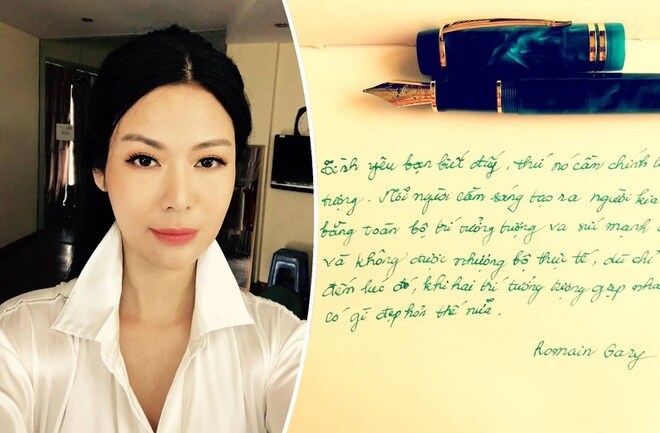 Tình yêu bạn biết đấy, thứ nó cần chính l
tưởng. Mỗi người cần sáng tạo ra người kia
bằng toàn bộ trí tưởng tượng và sức mạnh
và không được nhượng bộ thực tế, dù chỉ
đến lúc đó, khi hai trí tưởng tượng gặp nha
có gì đẹp hơn thế nữa.
Romain Gary